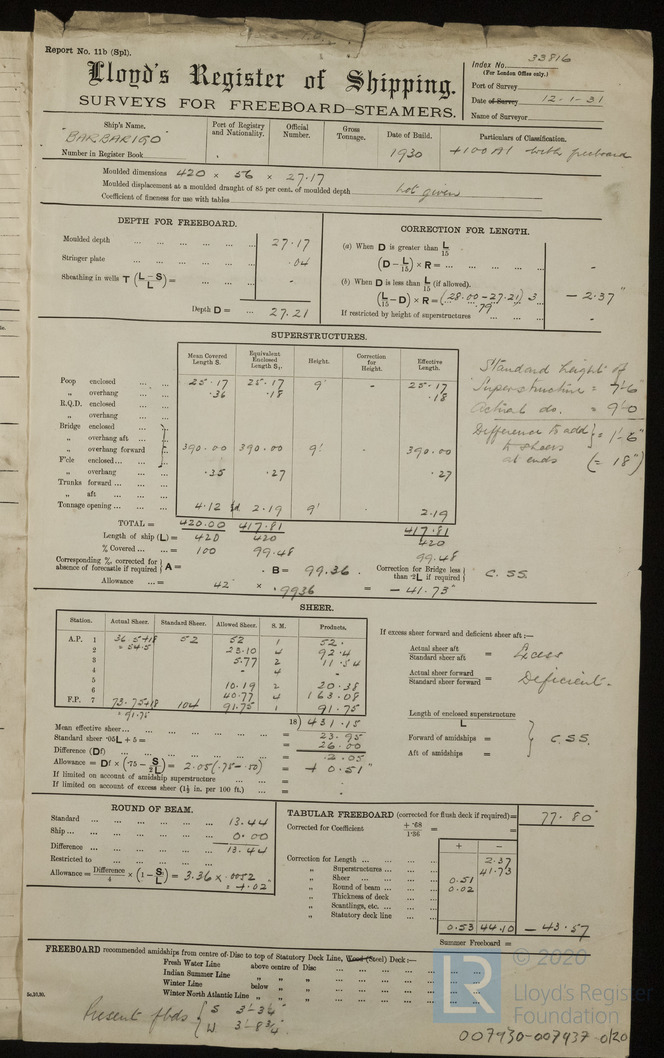 Report No. 11b (Spl).
Index No. 33816
(For London Office only.)
Lloyd's Register of Shipping.
Port of Survey
SURVEYS FOR FREEBOARD—STEAMERS.
Date of Survey 12.1.31
Name of Surveyor
Ship's Name. Port of Registry and Nationality. Official Number. Gross Tonnage. Date of Build. Particulars of Classification.
"BARBARIGO" 1930 +100A1 with freeboard
Number in Register Book
Moulded dimensions 420 × 56 × 27.17
Moulded displacement at a moulded draught of 85 per cent. of moulded depth not given
Coefficient of fineness for use with tables
DEPTH FOR FREEBOARD.
Moulded depth ... 27.17
Stringer plate ... .04
Sheathing in wells T (L-S/L) = -
Depth D = ... 27.21
CORRECTION FOR LENGTH.
(a) When D is greater than L/15
(D - L/15) × R = ... -
(b) When D is less than L/15 (if allowed).
(L/15 - D) × R = (28.00 - 27.21) 3 - 2.37"
.79
If restricted by height of superstructures ... -
SUPERSTRUCTURES.
Mean Covered Length S. Equivalent Enclosed Length S1. Height. Correction for Height. Effective Length.
Poop enclosed ... 25.17 25.17 9' - 25.17
„ overhang ... .36 .18 .18
R.Q.D. enclosed
„ overhang
Bridge enclosed
„ overhang aft
„ overhang forward 390.00 390.00 9' 390.00
F'cle enclosed
„ overhang .35 .27 .27
Trunks forward
„ aft
Tonnage opening ... 4.12 2.19 9' - 2.19
TOTAL = 420.00 417.81 417.81
Length of ship (L) = 420 420 420
% Covered = 100 99.48 99.48
Standard height of
Superstructure = 7'-6"
Actual do. = 9'-0
Difference to add } = 1'-6"
to sheers
at ends (= 18")
Corresponding % corrected for absence of forecastle if required } A = . B = 99.36 . Correction for Bridge less than ·2L if required } C.SS.
Allowance = 42" × .9936 = - 41.73"
SHEER.
Station. Actual Sheer. Standard Sheer. Allowed Sheer. S. M. Products.
A.P. 1 36.5+18 52 52 1 52.
2 = 54.5 23.10 4 92.4
3 5.77 2 11.54
4 - 4 -
5 10.19 2 20.38
6 40.77 4 163.08
F.P. 7 73.75+18 104 91.75 1 91.75
= 91.75
18) 431.15
Mean effective sheer ... = 23.95
Standard sheer ·05L + 5 = = 26.00
Difference (Df) = 2.05
Allowance = Df × (·75 - S/2L) = 2.05(.75-.50) = + 0.51"
If limited on account of amidship superstructure =
If limited on account of excess sheer (1½ in. per 100 ft.) =
If excess sheer forward and deficient sheer aft:—
Actual sheer aft / Standard sheer aft = Excess
Actual sheer forward / Standard sheer forward = Deficient.
Length of enclosed superstructure / L
Forward of amidships =
Aft of amidships = } C.SS.
ROUND OF BEAM.
Standard ... 13.44
Ship ... 0.00
Difference ... 13.44
Restricted to
Allowance = Difference/4 × (1 - S/L) = 3.36 × .0052
= +.02"
TABULAR FREEBOARD (corrected for flush deck if required) = 77.80"
Corrected for Coefficient + ·68 / 1·36 = =
+ -
Correction for Length ... 2.37
„ Superstructures ... 41.73
„ Sheer ... 0.51
„ Round of beam ... 0.02
„ Thickness of deck
„ Scantlings, etc.
„ Statutory deck line
0.53 44.10 - 43.57
Summer Freeboard =
FREEBOARD recommended amidships from centre of Disc to top of Statutory Deck Line, Wood (Steel) Deck:—
Fresh Water Line above centre of Disc
Indian Summer Line „ „
Winter Line below „
Winter North Atlantic Line „ „
5c,10,30.
Present fbds { S 3'-3¼"
W 3'-8¾"
© 2020
LR
Lloyd's Register
Foundation
007930-007937-0120